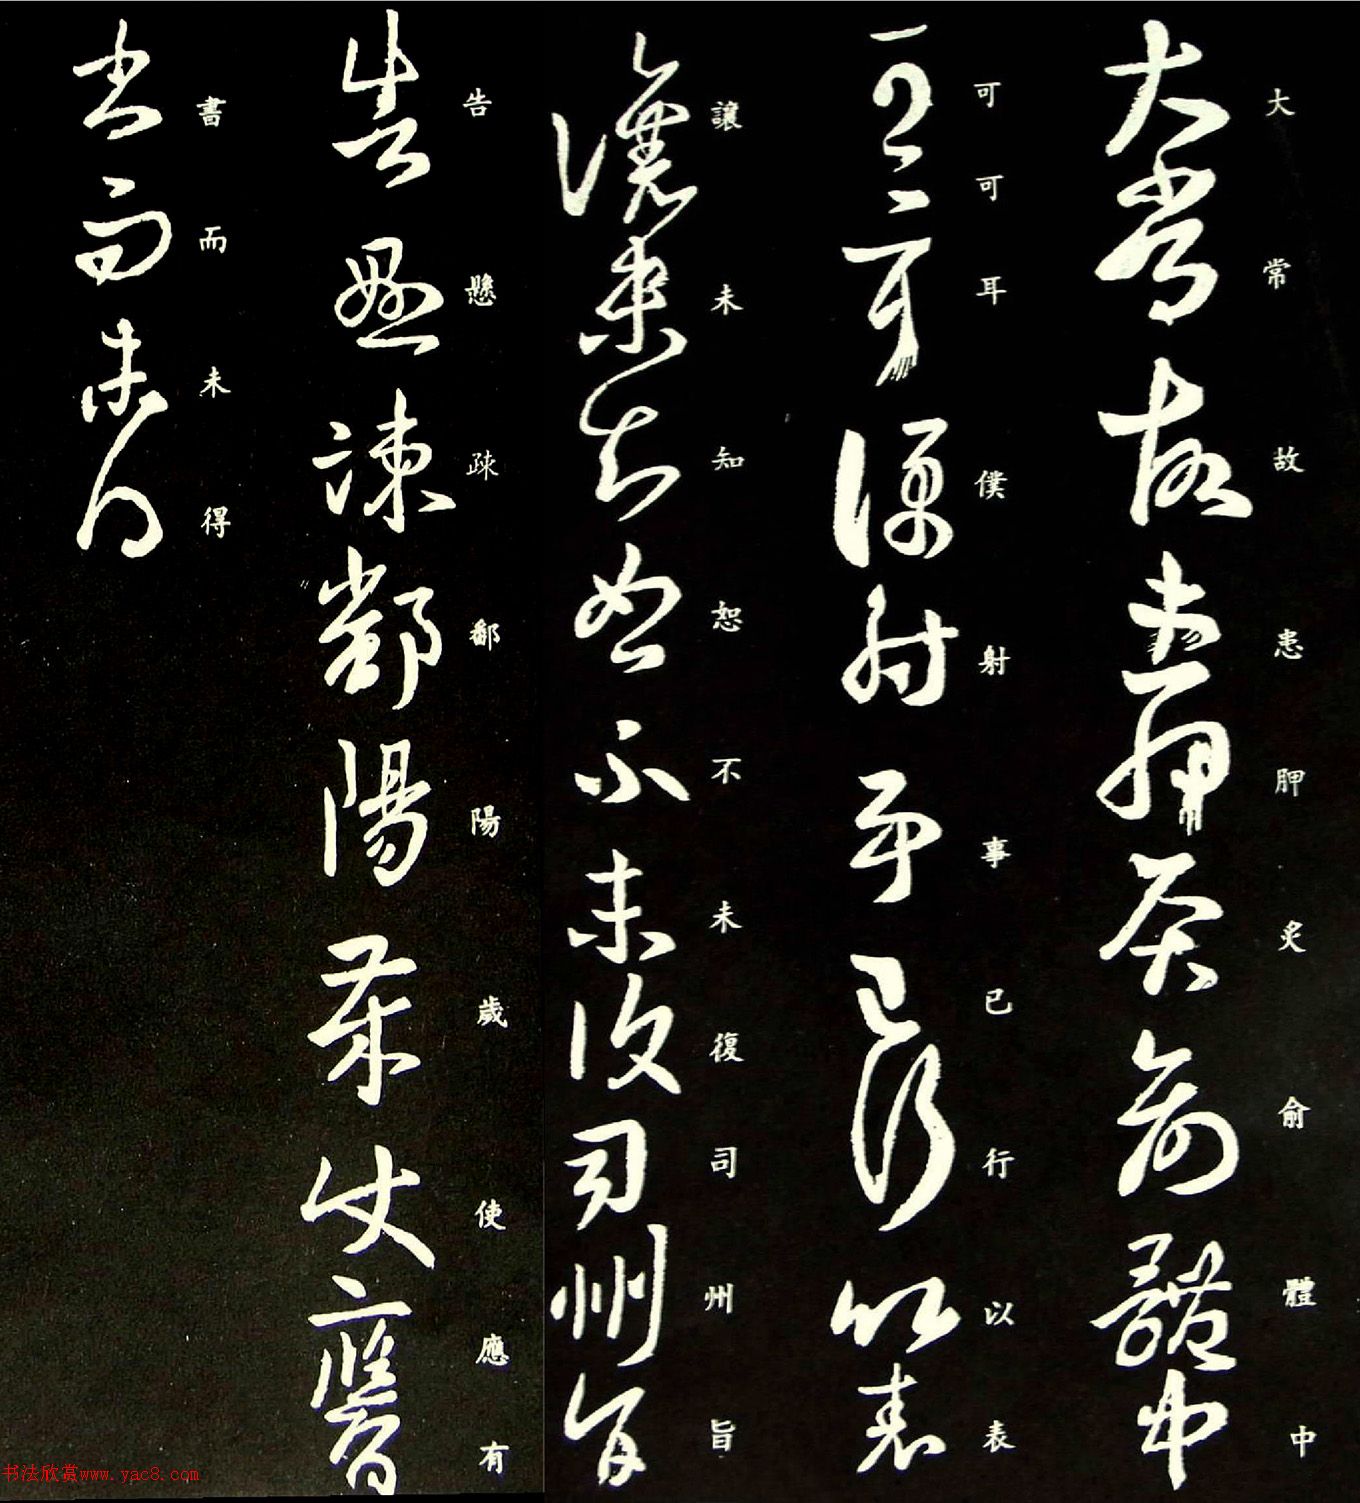 大常故患胛炙俞體中
可可耳僕射事已行以表
讓未知恕不未復司州旨
告懸疎鄱陽歲使應有
書而未得
书法欣赏www.yac8.com